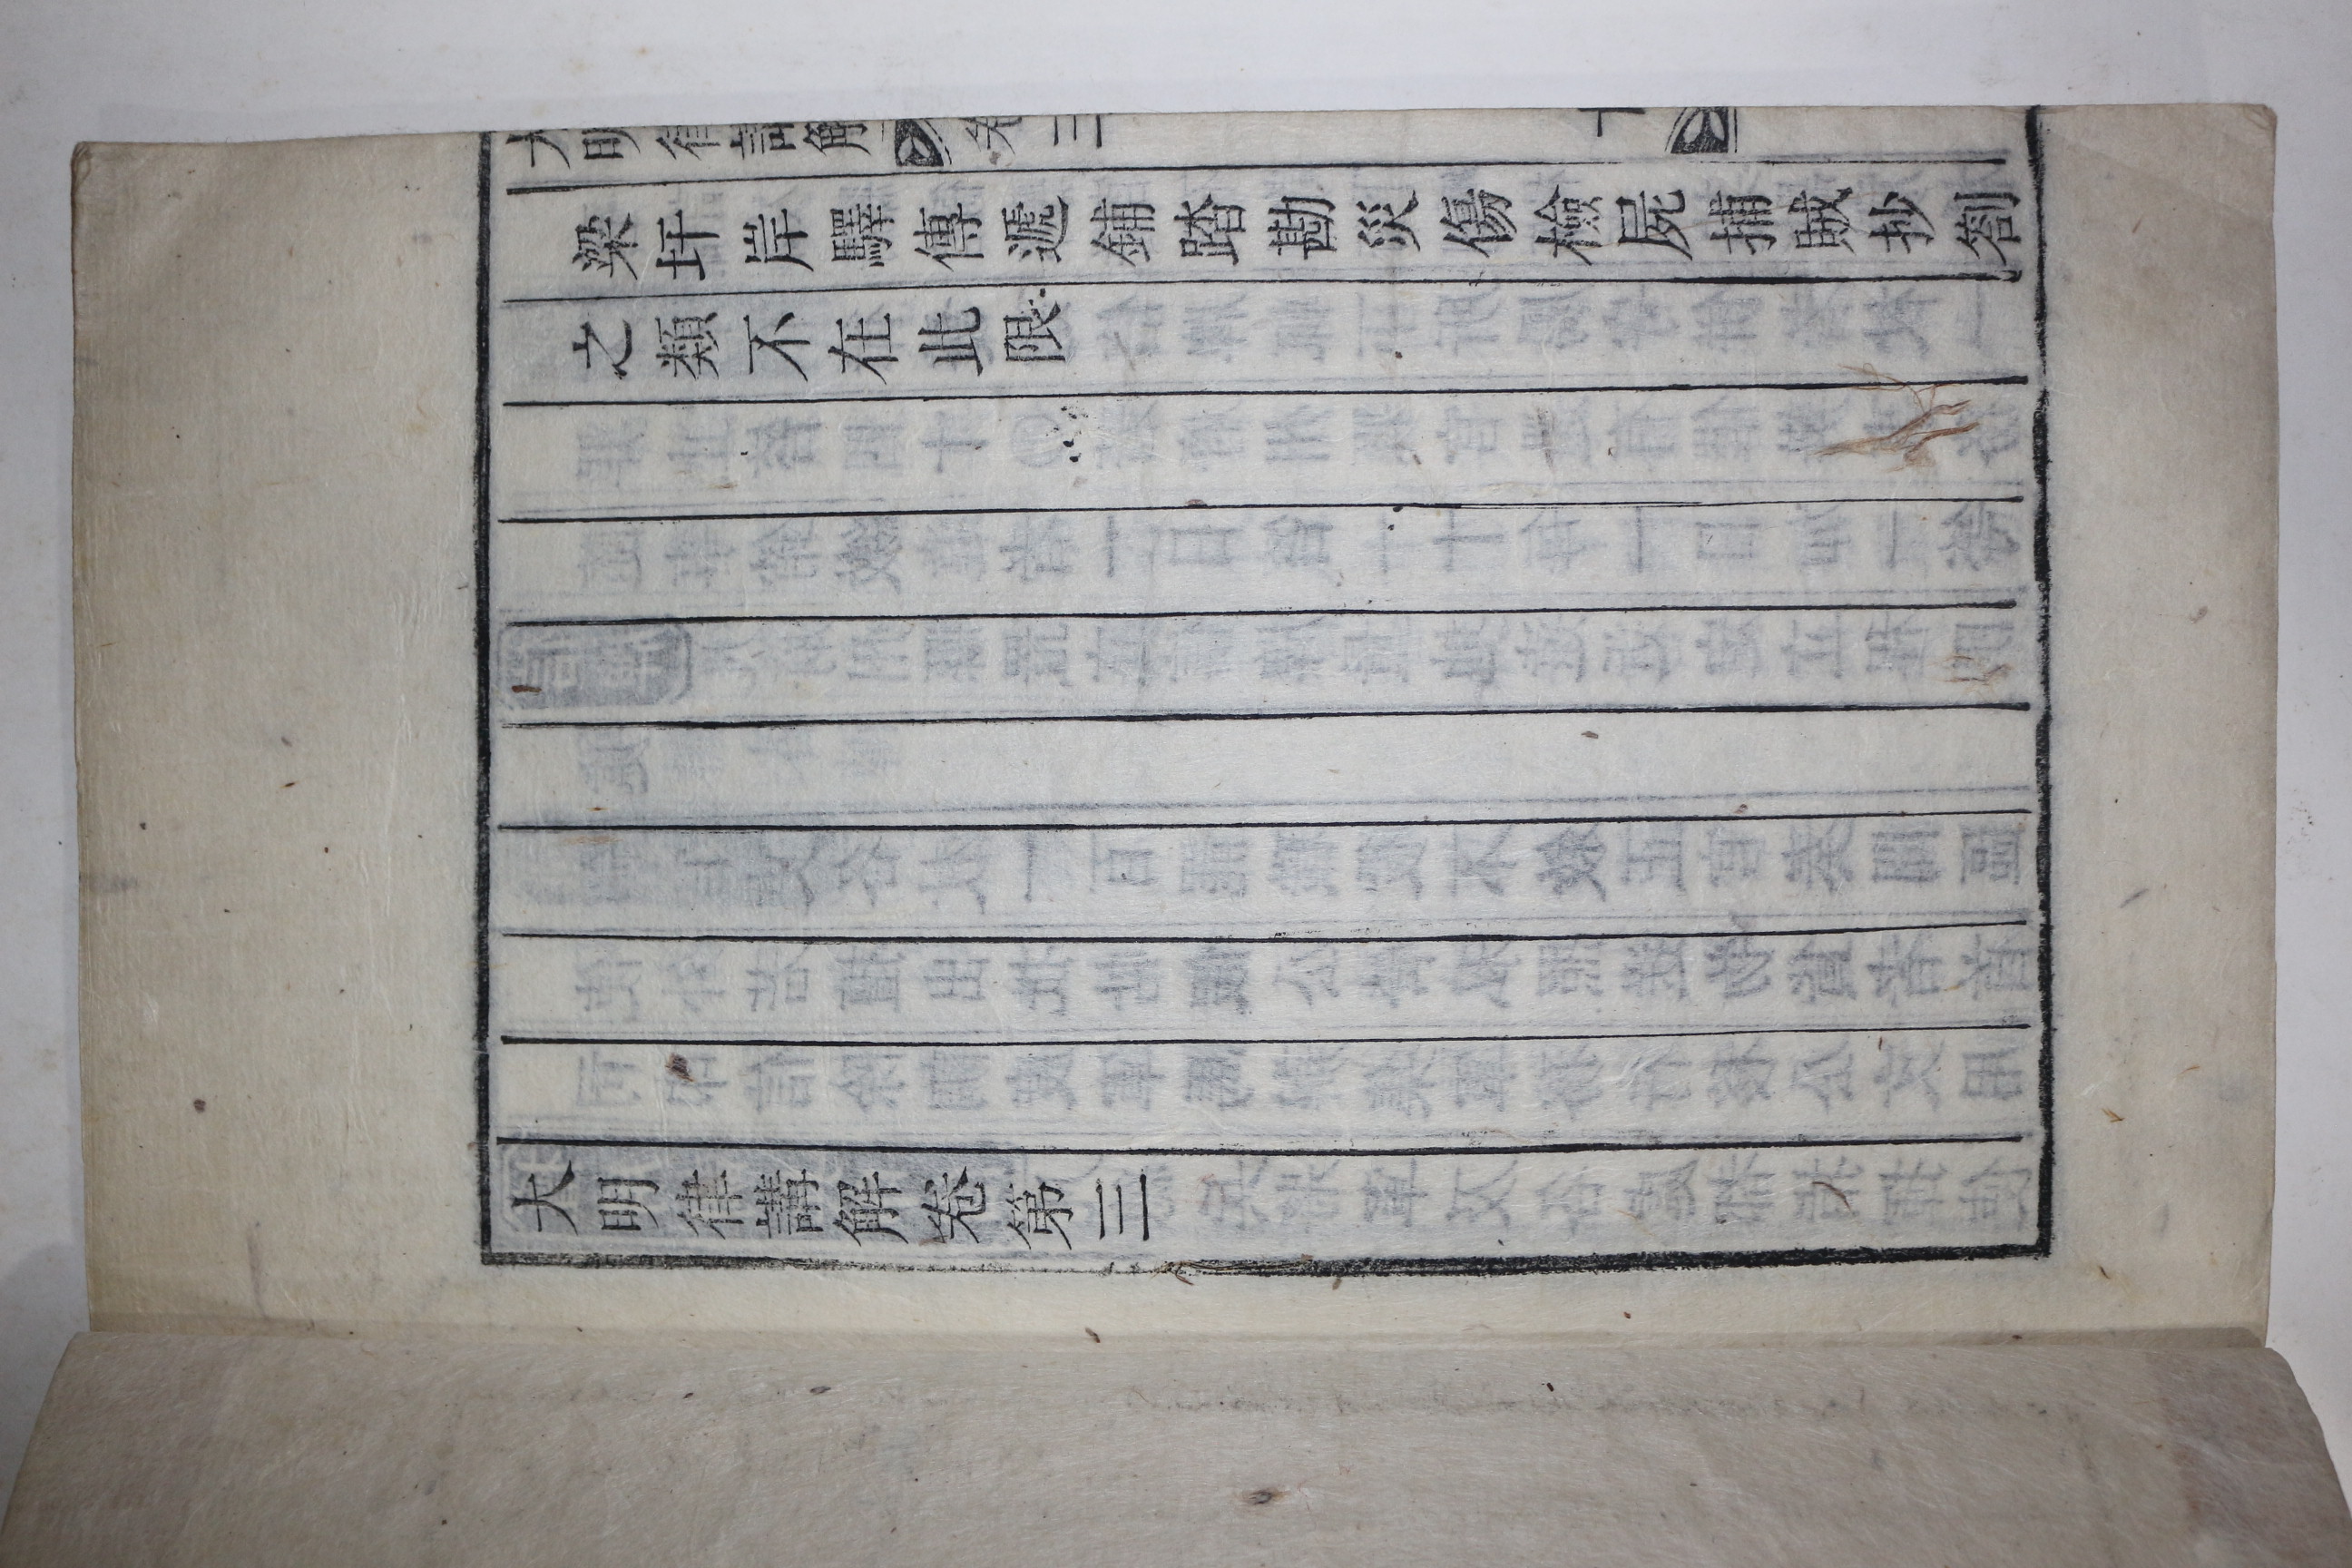 大明律講解 卷三 十
梁圩岸驛傳遞鋪踏勘災傷檢屍捕賊抄劄
之類不在此限
大明律講解卷第三